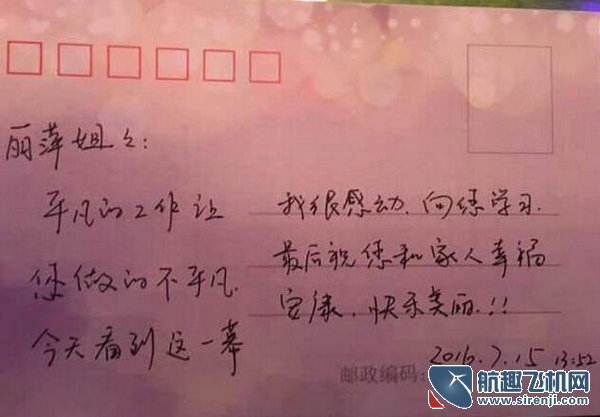 丽萍姐々:
平凡的工作让
您做的不平凡.
今天看到这一幕
我很感动.向您学习.
最后祝您和家人幸福
安康.快乐美丽.!!
2016.7.15 13:52
邮政编码:
航趣飞机网
www.sirenji.com